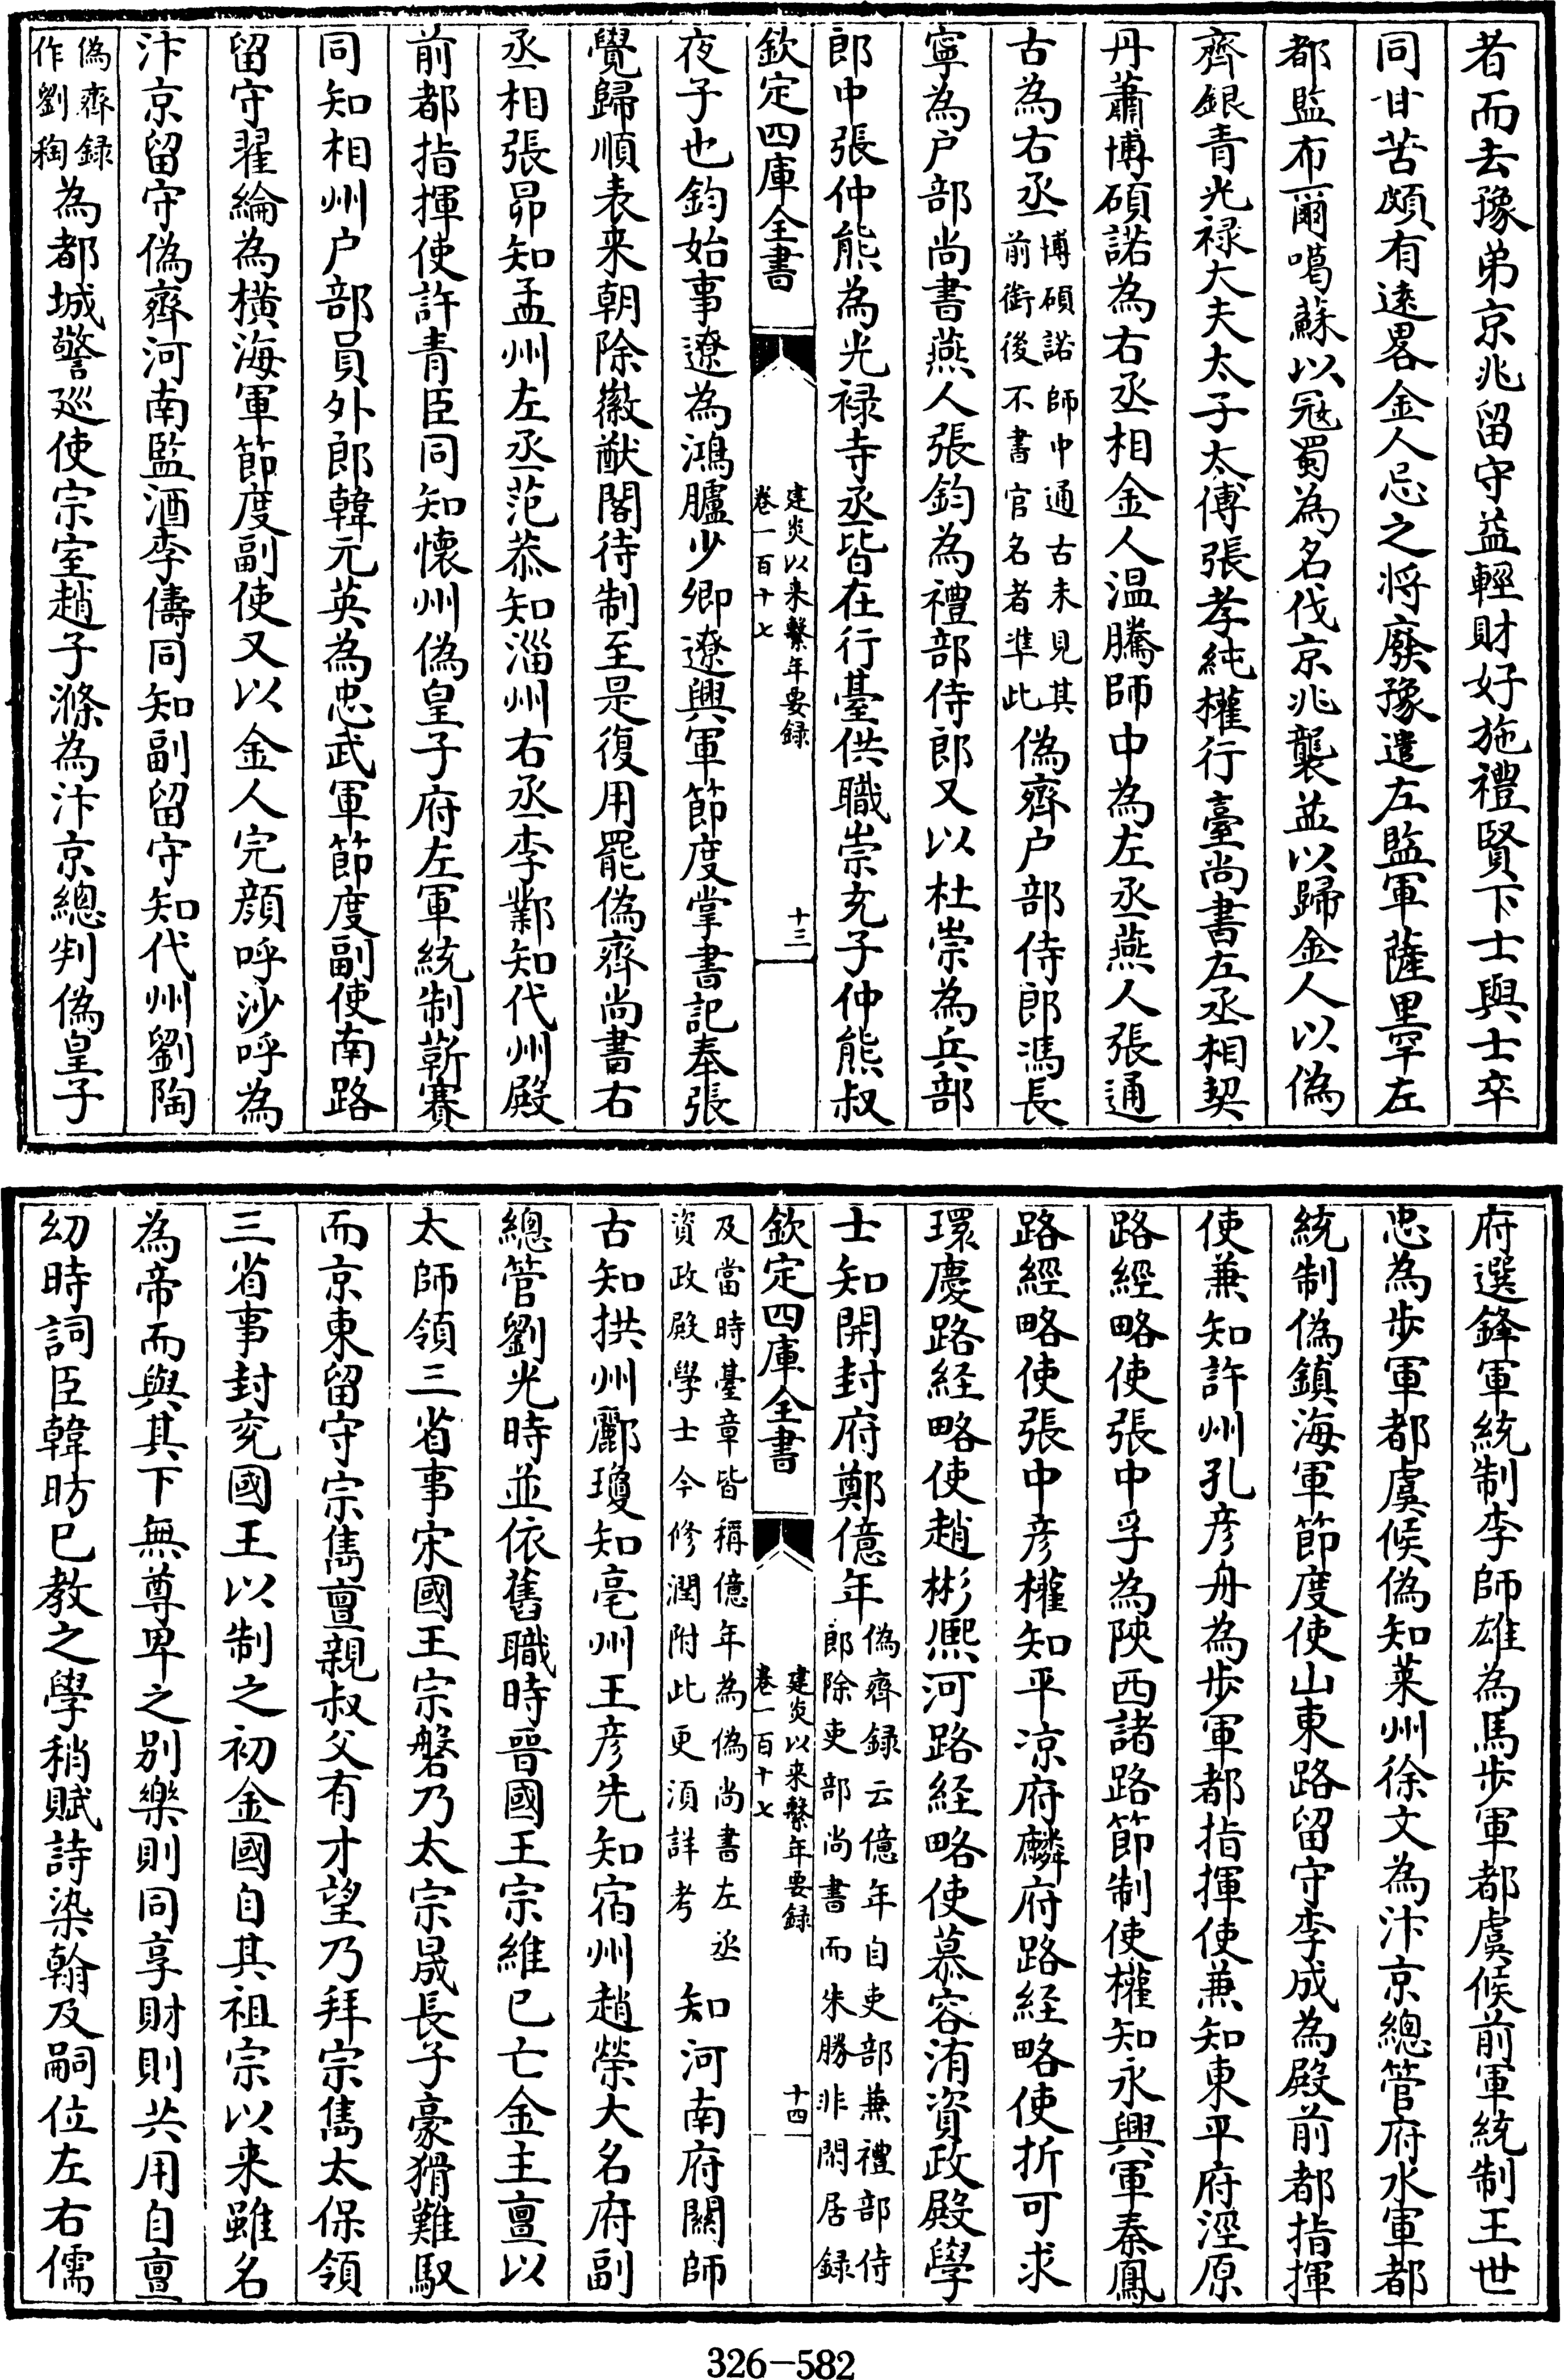 者而去豫弟京兆留守益輕財好施禮賢下士與士卒
同甘苦頗有逺畧金人忌之將廢豫遣左監軍薩里罕左
都監布爾噶蘇以冦蜀為名伐京兆襲益以歸金人以偽
齊銀青光禄大夫太子太傅張孝純權行臺尚書左丞相契
丹蕭博碩諾為右丞相金人温騰師中為左丞燕人張通
古為右丞博碩諾師中通古未見其前銜後不書官名者準此偽齊户部侍郎馮長
寧為户部尚書燕人張鈞為禮部侍郎又以杜崇為兵部
郎中張仲熊為光禄寺丞皆在行臺供職崇充子仲熊叔
欽定四庫全書
建炎以来繫年要録
卷一百十七
十三
夜子也鈞始事遼為鴻臚少卿遼興軍節度掌書記奉張
覺歸順表来朝除徽猷閣待制至是復用罷偽齊尚書右
丞相張昻知孟州左丞范恭知淄州右丞李鄴知代州殿
前都指揮使許青臣同知懷州偽皇子府左軍統制靳賽
同知相州户部員外郎韓元英為忠武軍節度副使南路
留守翟綸為横海軍節度副使又以金人完顔呼沙呼為
汴京留守偽齊河南監酒李儔同知副留守知代州劉陶
偽齊録作劉䄻為都城警廵使宗室趙子滌為汴京總判偽皇子
府選鋒軍統制李師雄為馬步軍都虞候前軍統制王世
忠為步軍都虞候偽知莱州徐文為汴京總管府水軍都
統制偽鎮海軍節度使山東路留守李成為殿前都指揮
使兼知許州孔彦舟為步軍都指揮使兼知東平府涇原
路經略使張中孚為陜西諸路節制使權知永興軍秦鳳
路經略使張中彦權知平凉府麟府路經略使折可求
環慶路經略使趙彬熈河路經略使慕容洧資政殿學
士知開封府鄭億年偽齊録云億年自吏部兼禮部侍郎除吏部尚書而朱勝非閒居録
欽定四庫全書
建炎以来繫年要録
卷一百十七
十四
及當時臺章皆稱億年為偽尚書左丞資政殿學士今修潤附此更湏詳考知河南府關師
古知拱州酈瓊知亳州王彦先知宿州趙榮大名府副
總管劉光時並依舊職時晉國王宗維已亡金主亶以
太師領三省事宋國王宗磐乃太宗晟長子豪猾難馭
而京東留守宗雋亶親叔父有才望乃拜宗雋太保領
三省事封兖國王以制之初金國自其祖宗以来雖名
為帝而與其下無尊卑之别樂則同享財則共用自亶
幼時詞臣韓昉已教之學稍賦詩染翰及嗣位左右儒
326-582